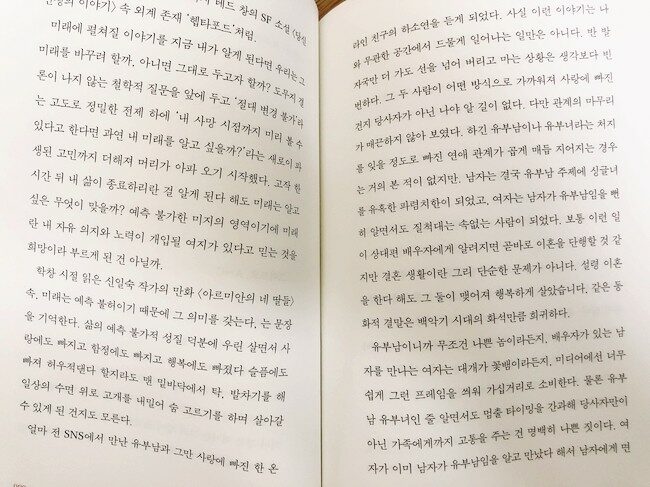 테드 창의 SF 소설 〈당신
인생의 이야기〉 속 외계 존재 '헵타포드'처럼.
미래에 펼쳐질 이야기를 지금 내가 알게 된다면 우리는 그
미래를 바꾸려 할까, 아니면 그대로 두고자 할까? 도무지 결
론이 나지 않는 철학적 질문을 앞에 두고 '절대 변경 불가'라
는 고도로 정밀한 전제 하에 '내 사망 시점까지 미리 볼 수
있다고 한다면 과연 내 미래를 알고 싶을까?'라는 새로이 파
생된 고민까지 더해져 머리가 아파 오기 시작했다. 고작 한
시간 뒤 내 삶이 종료하리란 걸 알게 된다 해도 미래는 알고
싶은 무엇이 맞을까? 예측 불가한 미지의 영역이기에 미래
란 내 자유 의지와 노력이 개입될 여지가 있다고 믿는 것을
희망이라 부르게 된 건 아닐까.
학창 시절 읽은 신일숙 작가의 만화 〈아르미안의 네 딸들〉
속, 미래는 예측 불허이기 때문에 그 의미를 갖는다, 는 문장
을 기억한다. 삶의 예측 불가적 성질 덕분에 우린 살면서 사
랑에도 빠지고 함정에도 빠지고 행복에도 빠졌다 슬픔에도
빠져 허우적댄다 할지라도 맨 밑바닥에서 탁, 발차기를 해
일상의 수면 위로 고개를 내밀어 숨 고르기를 하며 살아갈
수 있게 된 건지도 모른다.
얼마 전 SNS에서 만난 유부남과 그만 사랑에 빠진 한 온
라인 친구의 하소연을 듣게 되었다. 사실 이런 이야기는 나
와 무관한 공간에서 드물게 일어나는 일만은 아니다. 반 발
자국만 더 가도 선을 넘어 버리고 마는 상황은 생각보다 빈
번하다. 그 두 사람이 어떤 방식으로 가까워져 사랑에 빠진
건지 당사자가 아닌 나야 알 길이 없다. 다만 관계의 마무리
가 매끈하지 않아 보였다. 하긴 유부남이나 유부녀라는 처지
를 잊을 정도로 빠진 연애 관계가 곱게 매듭 지어지는 경우
는 거의 본 적이 없지만. 남자는 결국 유부남 주제에 싱글녀
를 유혹한 파렴치한이 되었고, 여자는 남자가 유부남임을 뻔
히 알면서도 질척대는 속없는 사람이 되었다. 보통 이런 일
이 상대편 배우자에게 알려지면 곧바로 이혼을 단행할 것 같
지만 결혼 생활이란 그리 단순한 문제가 아니다. 설령 이혼
을 한다 해도 그 둘이 맺어져 행복하게 살았습니다, 같은 동
화적 결말은 백악기 시대의 화석만큼 희귀하다.
유부남이니까 무조건 나쁜 놈이라든지, 배우자가 있는 남
자를 만나는 여자는 대개가 꽃뱀이라든지, 미디어에선 너무
쉽게 그런 프레임을 씌워 가십거리로 소비한다. 물론 유부
남 유부녀인 줄 알면서도 멈출 타이밍을 간과해 당사자만이
아닌 가족에게까지 고통을 주는 건 명백히 나쁜 짓이다. 여
자가 이미 남자가 유부남임을 알고 만났다 해서 남자에게 면